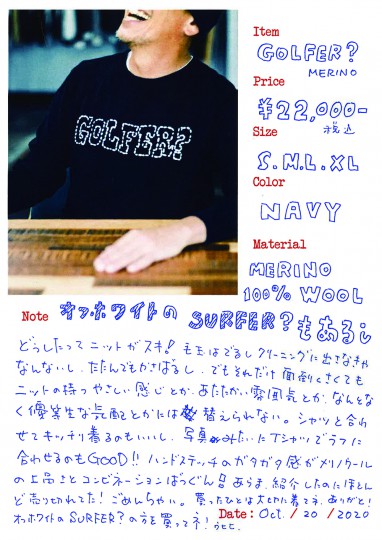 GOLFER?
Item
GOLFER?
MERINO
Price
¥22,000-
税込
Size
S.M.L.XL
Color
NAVY
Material
MERINO
100% WOOL
Note オッホワイトの SURFER?もあるよ
どうしたってニットがスキ! 毛玉はでるしクリーニングに出さなきゃ
なんないし、たたんでもかさばるし、でもそれだけ面倒くさくても
ニットの持つやさしい感じとか、あたたかい雰囲気とか、なんとな
く優等生な気配とかには替えられない。シャツと合わ
せてキッチリ着るのもいいし、写真みたいにTシャツでラフに
合わせるのもGOOD!! ハンドステッチのガタガタ感がメリノウール
の上品さとコンビネーションばつぐん! あらま、紹介したのにほとん
ど売り切れてた! ごめんちゃい。買ったひとは大切に着てネ、ありがと!
オッホワイトのSURFER?の方を買ってネ! うヒヒ。
Date: Oct. / 20 / 2020